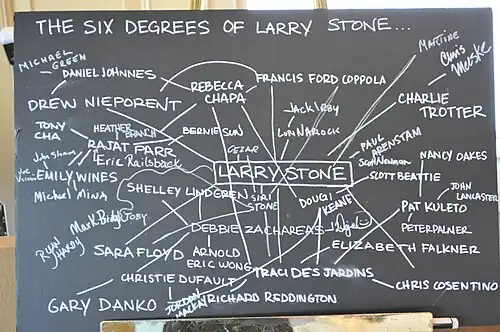 THE SIX DEGREES OF LARRY STONE...
MICHAEL
GREEN
MARTINE
Chris
Meeske
DANIEL JOHNNES
REBECCA
CHAPA
FRANCIS FORD COPPOLA
DREW NIEPORENT
CHARLIE
TROTTER
JACK IRBY
TONY
CHA
HEATHER
BRANCH
BERNIE SUN
LON NAROCK
RAJAT PARR
Eric Railsback
CEZAR
PAUL
ARENSTAM
Scott Newman
NANCY OAKES
EMILY WINES
LARRY STONE
SCOTT BEATTIE
Michael Mina
SHELLEY LINDGREN
SIRI
STONE
DOUGI
KEANE
JOHN
LANCASTER
Mark Bright
TOBY
PAT KULETO
DEBBIE ZACHAREAS
Nigel
PETER PALMER
RYAN
HARDY
SARA FLOYD
ARNOLD
ERIC WONG
ELIZABETH FALKNER
CHRISTIE DUFAULT
TRACI DES JARDINS
CHRIS COSENTINO
GARY DANKO
JORDAN
MACKAY
RICHARD REDDINGTON